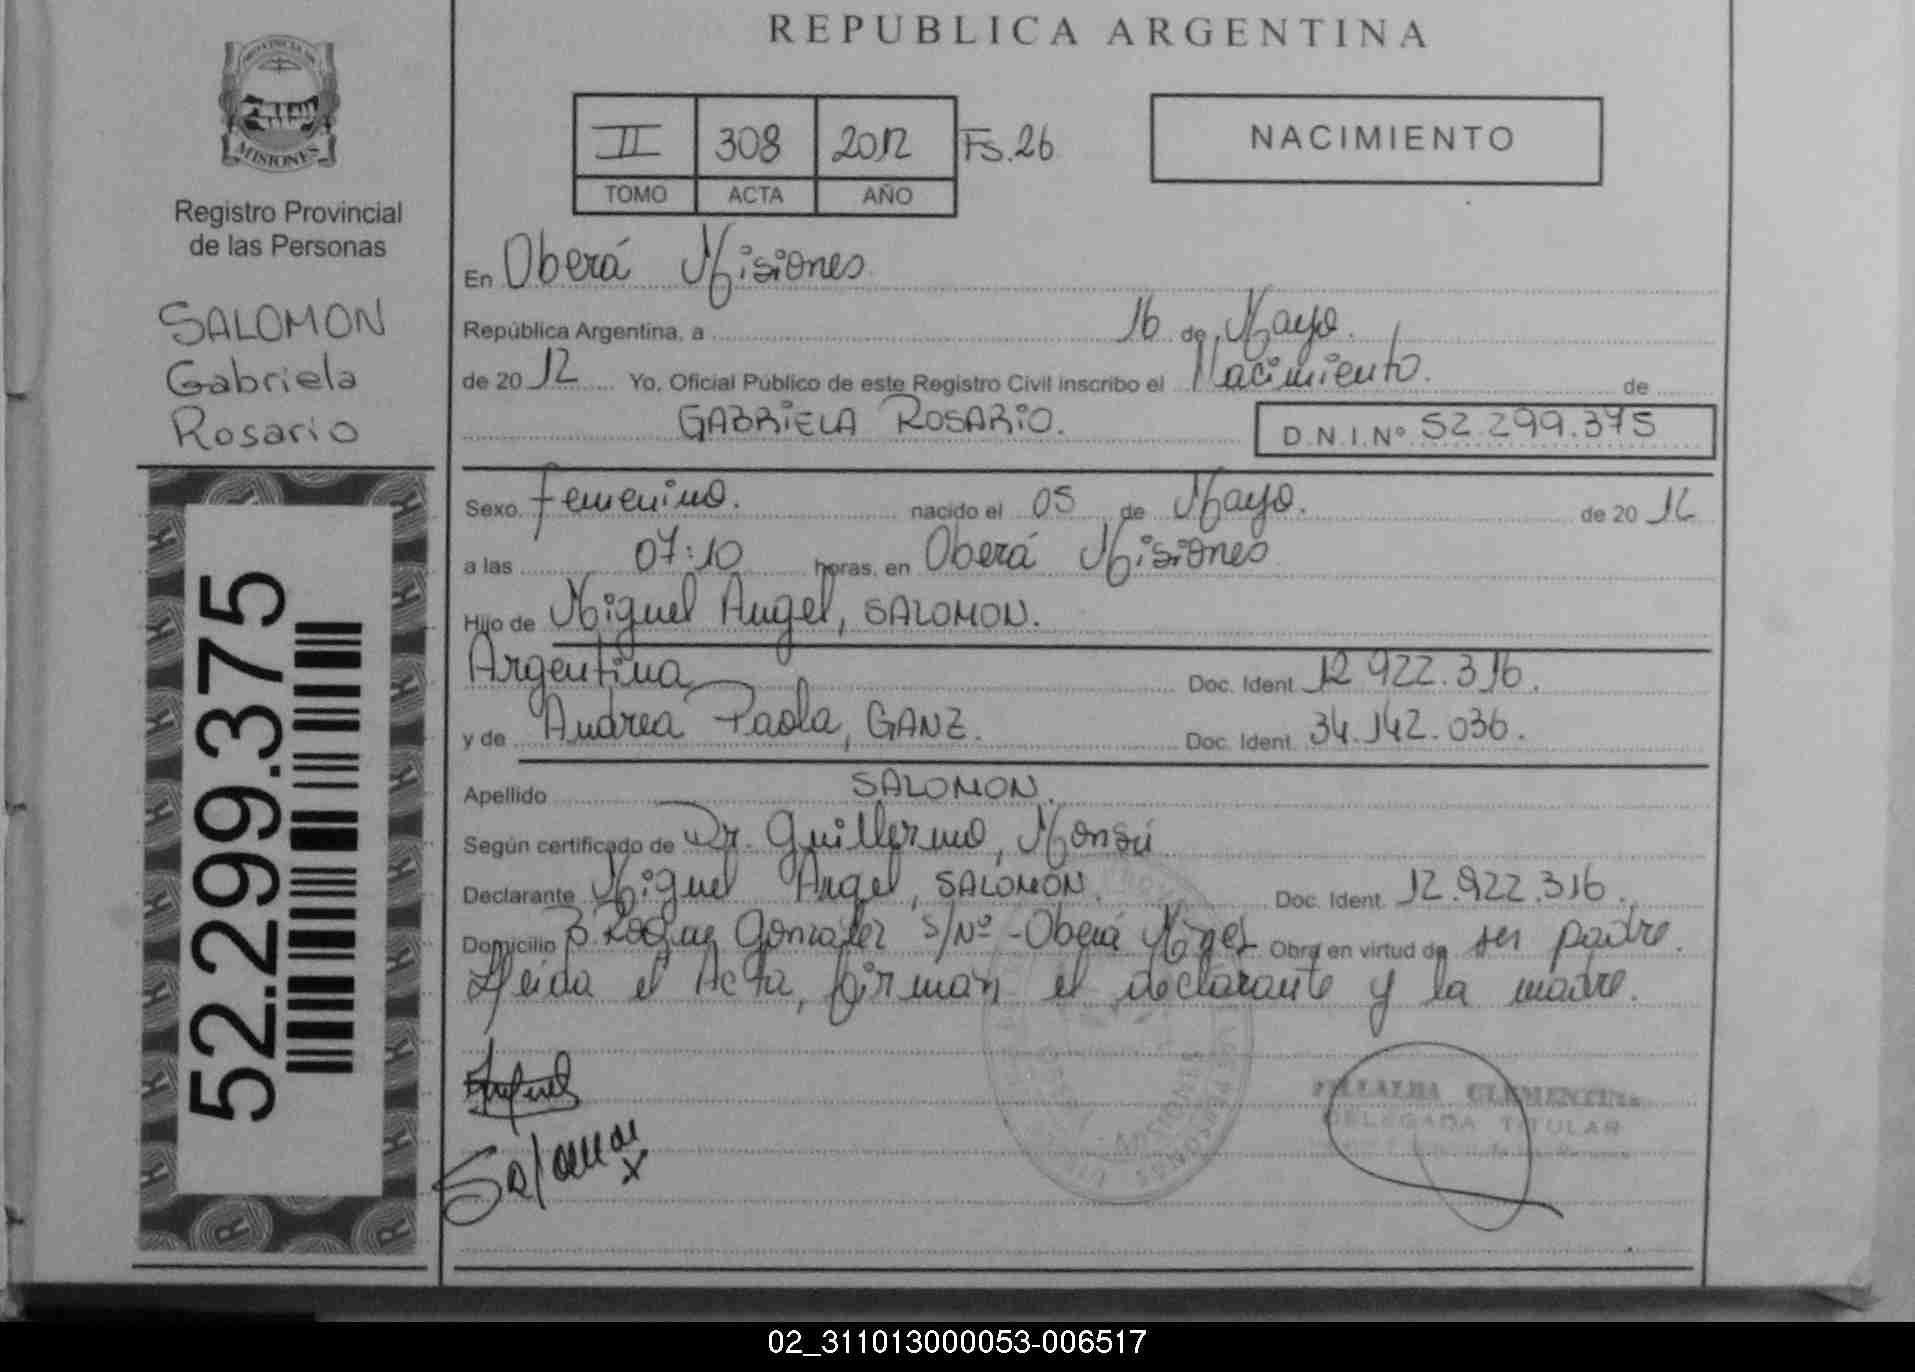 REPUBLICA ARGENTINA
PROVINCIA DE
MISIONES
Registro Provincial
de las Personas
SALOMON
Gabriela
Rosario
52.299.375
II 308 2012 Fs. 26
TOMO ACTA AÑO
NACIMIENTO
En Oberá Misiones
República Argentina, a 16 de Mayo.
de 20 12 Yo, Oficial Público de este Registro Civil inscribo el Nacimiento. de
GABRIELA ROSARIO. D.N.I.Nº 52.299.375
Sexo. Femenino. nacido el 05 de Mayo. de 20 12
a las 07:10 horas, en Oberá Misiones
Hijo de Miguel Angel, SALOMON.
Argentina Doc. Ident. 12.922.316.
y de Andrea Paola, GANZ. Doc. Ident. 34.142.036.
Apellido SALOMON.
Según certificado de Dr. Guillermo, Monsú
Declarante Miguel Angel, SALOMON. Doc. Ident. 12.922.316.
Domicilio B. Roque González S/Nº - Oberá Mnes. Obra en virtud de ser padre.
Leida el Acta, firman el declarante y la madre.
Miguel
Salomon
VILLALBA CLEMENTINA
DELEGADA TITULAR
02_311013000053-006517